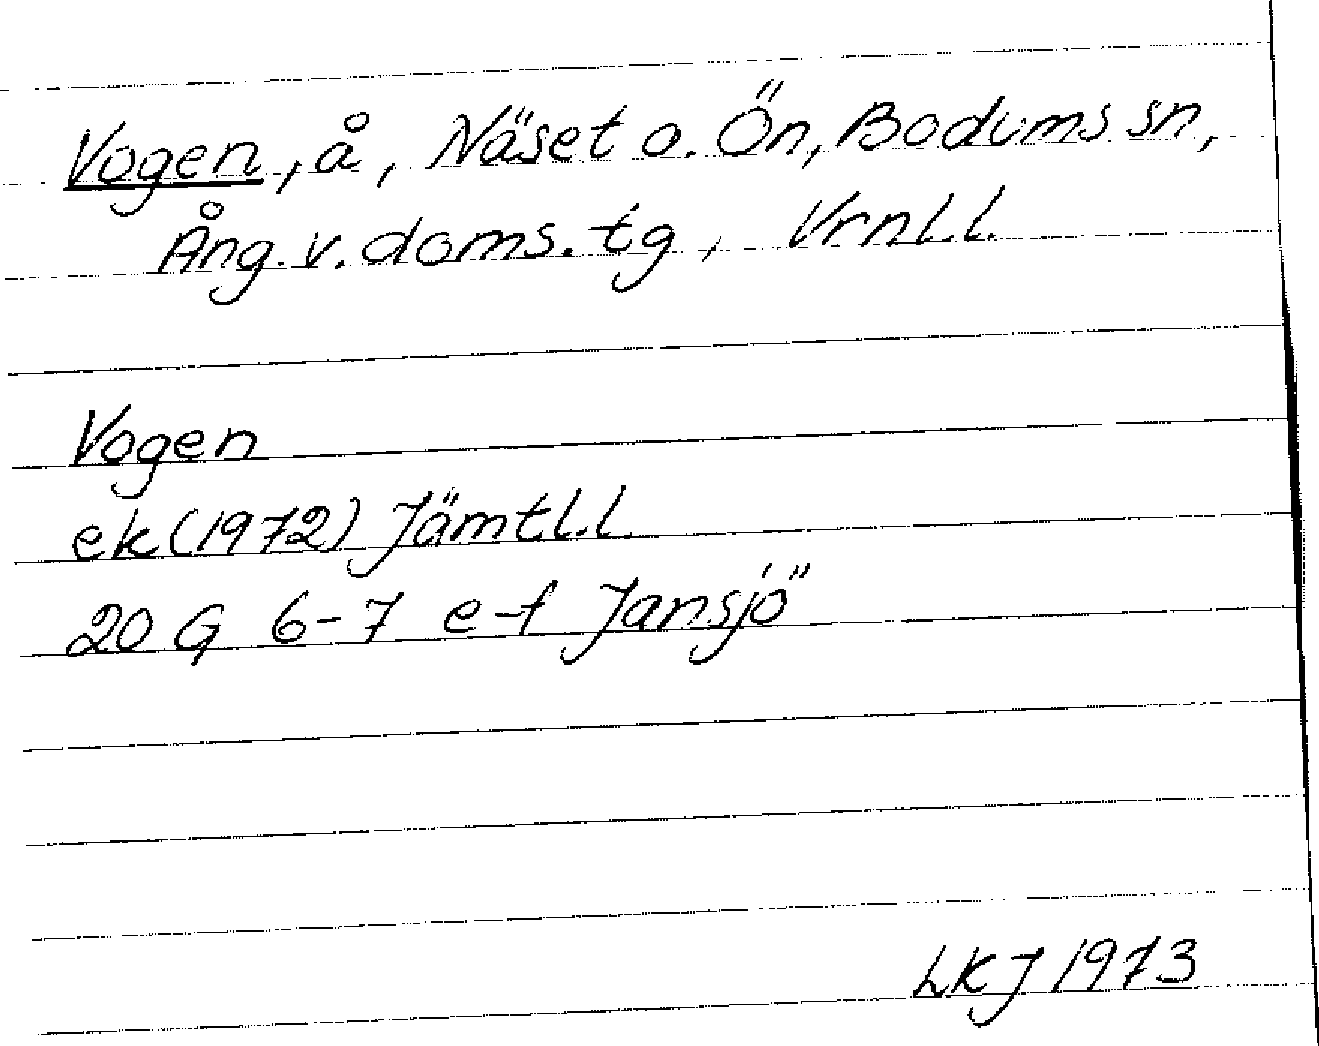 Vogen, å, Näset o. Ön, Bodums sn,
Ång. v. doms. tg, Vrnl.l.
Vogen
ek (1972) Jämtl.l.
20 G 6-7 e-f Jansjö
LKJ 1973